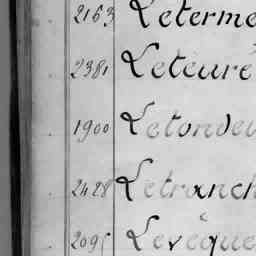 2163 Leterme
2381 Leteuré
1900 Letondeu
2428 Letranch
2095 Levêque